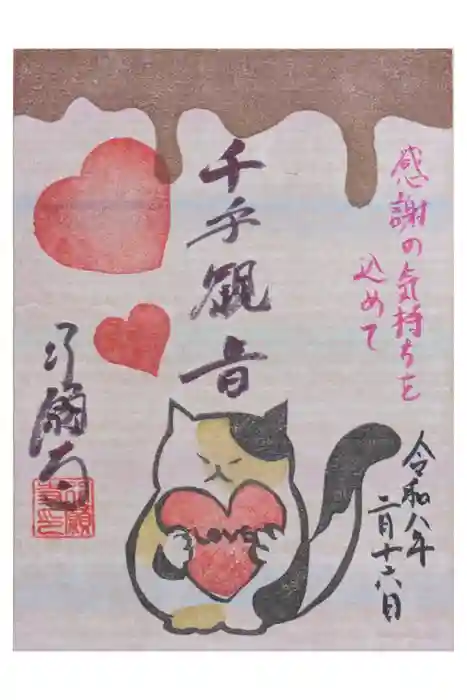 感謝の気持ちを
込めて
千手観音
Love
令和八年
二月十六日
行願寺